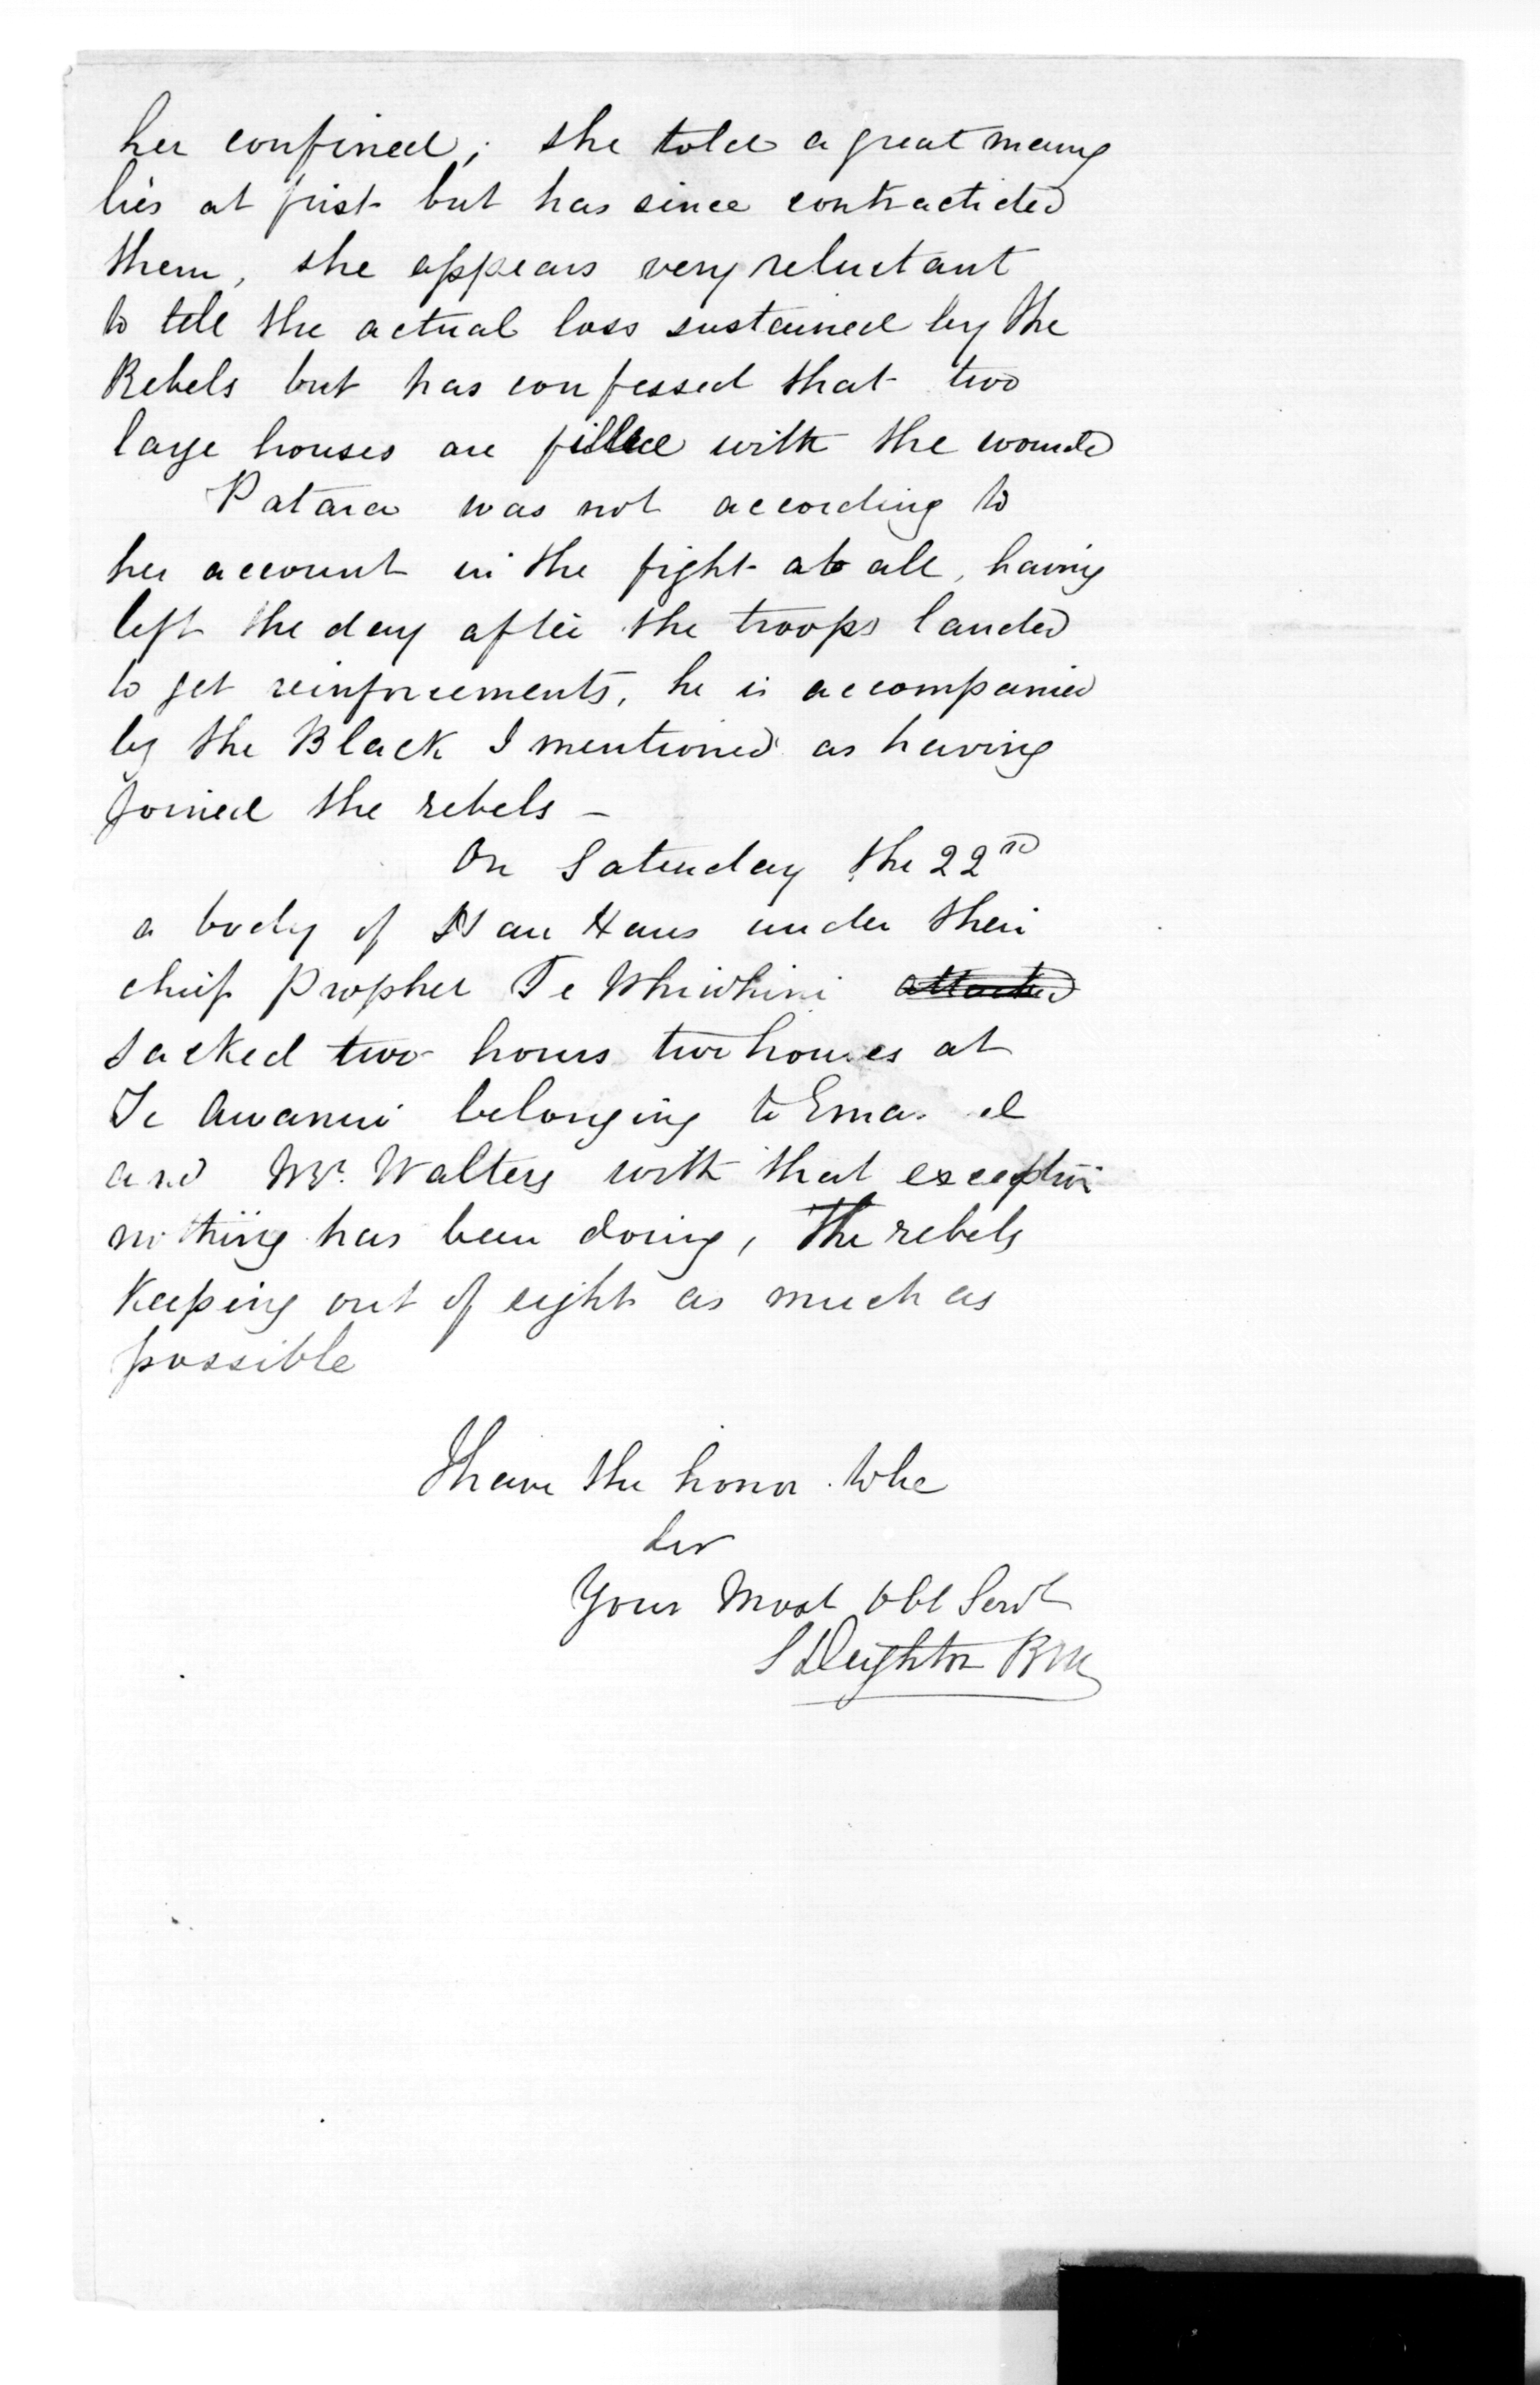 her confined; she told a great many
lies at first but has since contracticted
them, she appears very reluctant
to tell the actual loss sustained by the
Rebels but has confessed that two
large houses are filled with the wounded
Patara was not according to
her account in the fight at all, having
left the day after the troops landed
to get reinforcements, he is accompanied
by the Black I mentioned as having
joined the rebels –
On Saturday the 22nd
a body of Hau Haus under their
chief Prophet Te Whiwhini attacked
sacked two hours two houses at
Te Awanui belonging to
and Mr. Walters with that exception
nothing has been doing, the rebels
Keeping out of sight as much as
possible
I have the honor to be
Sir
Your Most Obt Servt
S Deighton RM